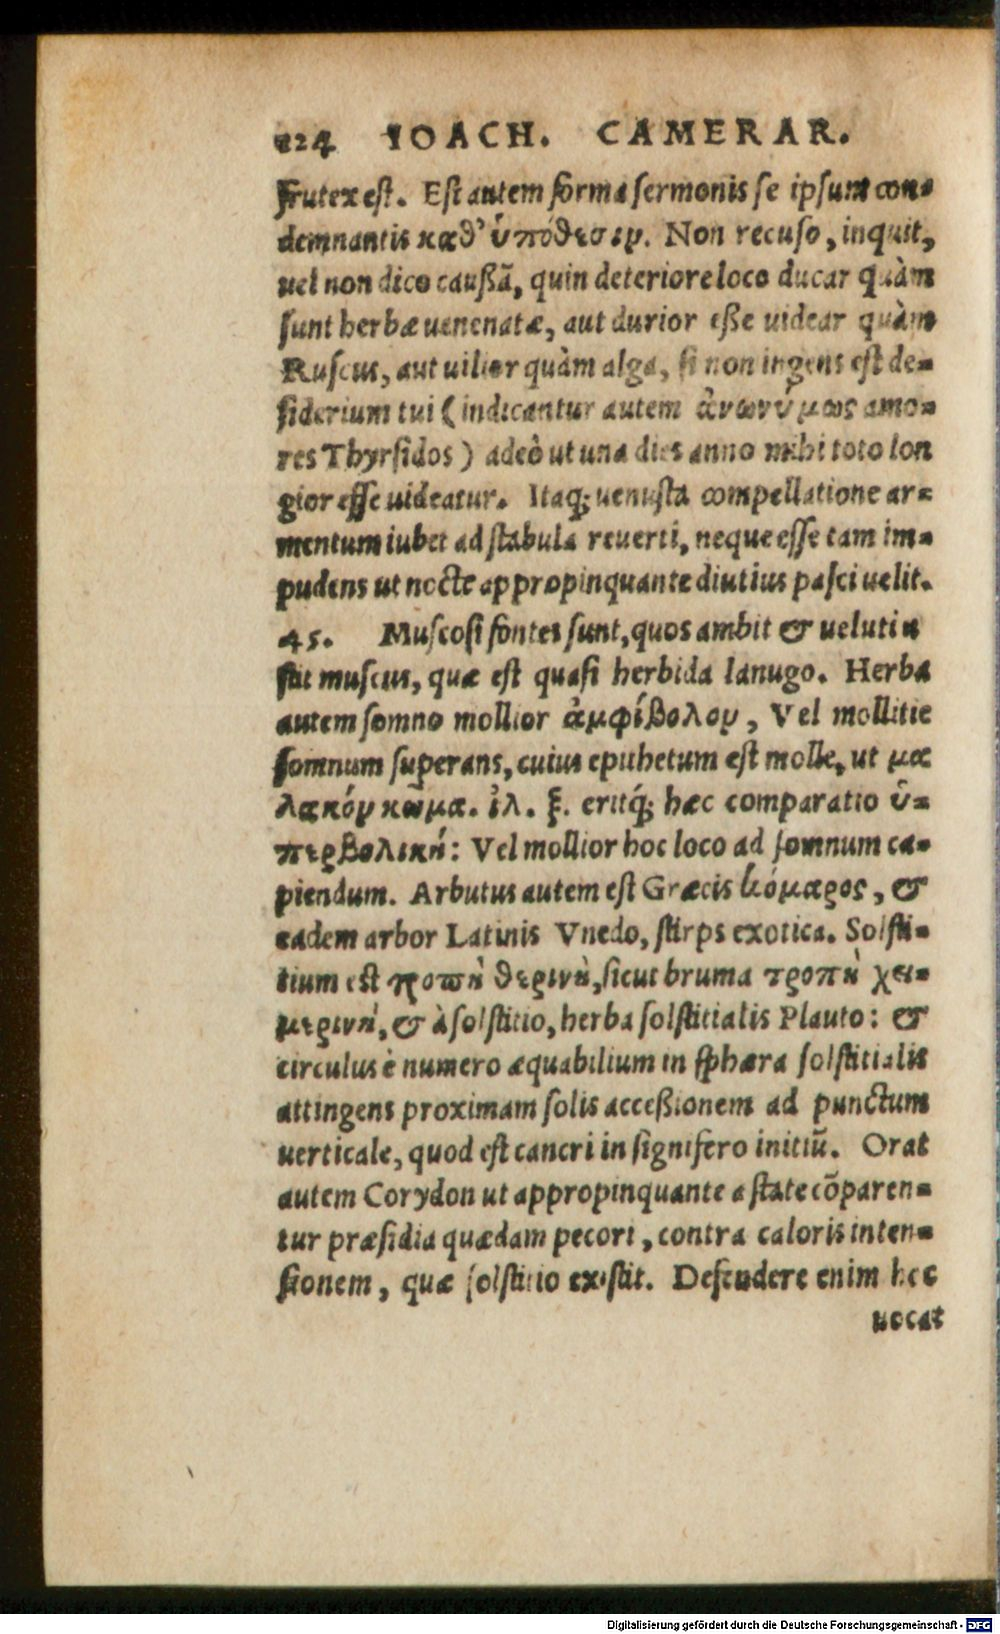 124 IOACH. CAMERAR.
Frutex est. Est autem forma sermonis se ipsum con-
demnantis καθ' ὑπόθεσιν. Non recuso, inquit,
uel non dico caußã, quin deteriore loco ducar quàm
sunt herbæ uenenatæ, aut durior eße uidear quàm
Ruscus, aut uilior quàm alga, si non ingens est de-
siderium tui (indicantur autem ἀνωνύμως amo-
res Thyrsidos) adeò ut una dies anno mihi toto lon
gior esse uideatur. Itaq; uenusta compellatione ar-
mentum iubet ad stabula reuerti, neque esse tam im-
pudens ut nocte appropinquante diutius pasci uelit.
45. Muscosi fontes sunt, quos ambit & uelutiu
stit muscus, quæ est quasi herbida lanugo. Herba
autem somno mollior ἀμφίβολον, Vel mollitie
somnum superans, cuius epithetum est molle, ut μα
λακόν κῶμα. ἰλ. ξ. eritq́; hæc comparatio ὑ-
περβολική: Vel mollior hoc loco ad somnum ca-
piendum. Arbutus autem est Græcis κόμαρος, &
eadem arbor Latinis Vnedo, stirps exotica. Solsti-
tium est τροπὴ θερινὴ, sicut bruma τροπὴ χει-
μερινή, & à solstitio, herba solstitialis Plauto: &
circulus è numero æquabilium in sphæra solstitialis
attingens proximam solis acceßionem ad punctum
uerticale, quod est cancri in signifero initiũ. Orat
autem Corydon ut appropinquante æstate cõparen-
tur præsidia quædam pecori, contra caloris inten-
sionem, quæ solstitio existit. Defendere enim hec
uocat
Digitalisierung gefördert durch die Deutsche Forschungsgemeinschaft - DFG